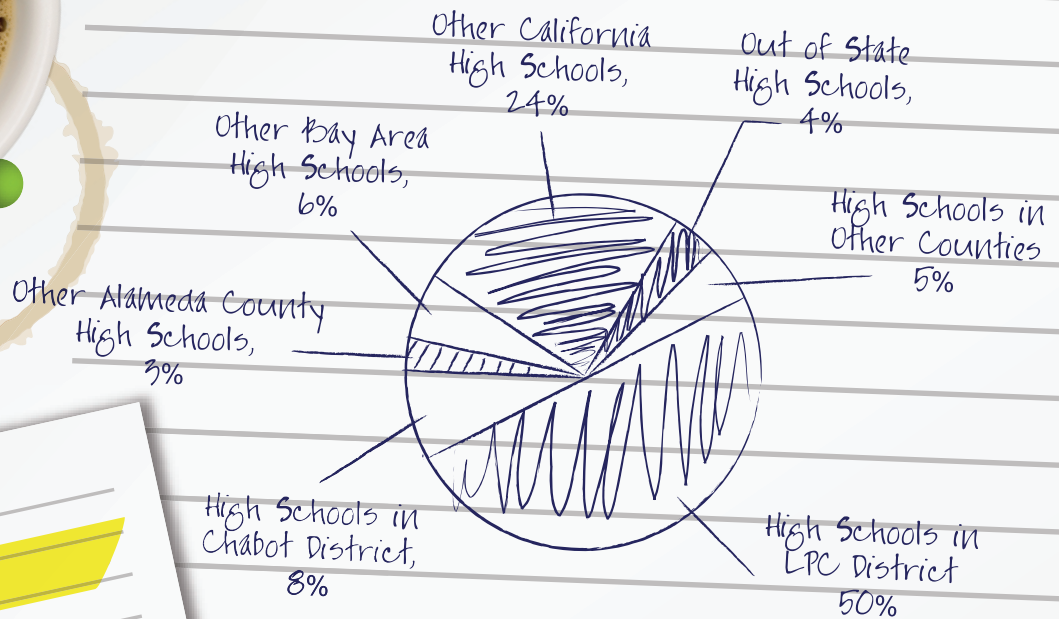 Other California
High Schools,
24%
Out of State
High Schools,
4%
Other Bay Area
High Schools,
6%
High Schools in
Other Counties
5%
Other Alameda County
High Schools,
3%
High Schools in
Chabot District,
8%
High Schools in
LPC District
50%